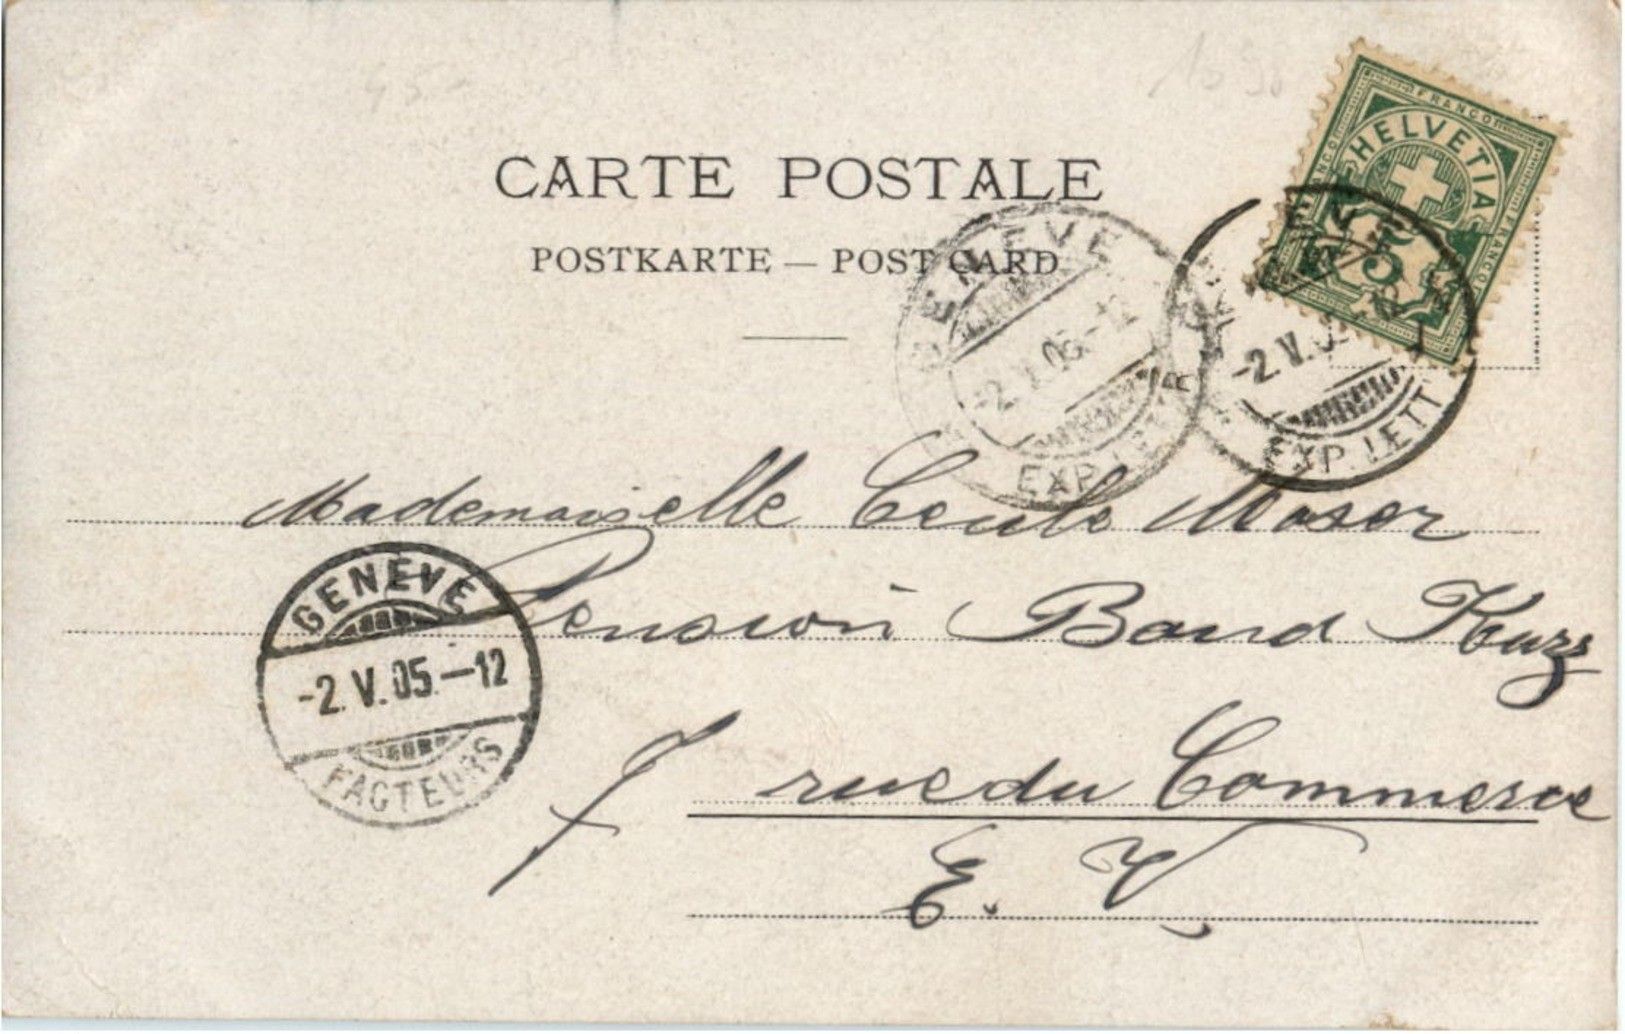 45-
CARTE POSTALE
POSTKARTE — POST CARD
FRANCO
HELVETIA
FRANCO
FRANCO
5
GENEVE
-2.V.05.-12
EXP. LETTR
-2.V.05
EXP. LETT
Mademoiselle Cecile Moser
Pension Band Kurz
GENÈVE
-2.V.05.-12
FACTEURS
7 rue du Commerce
E. V.